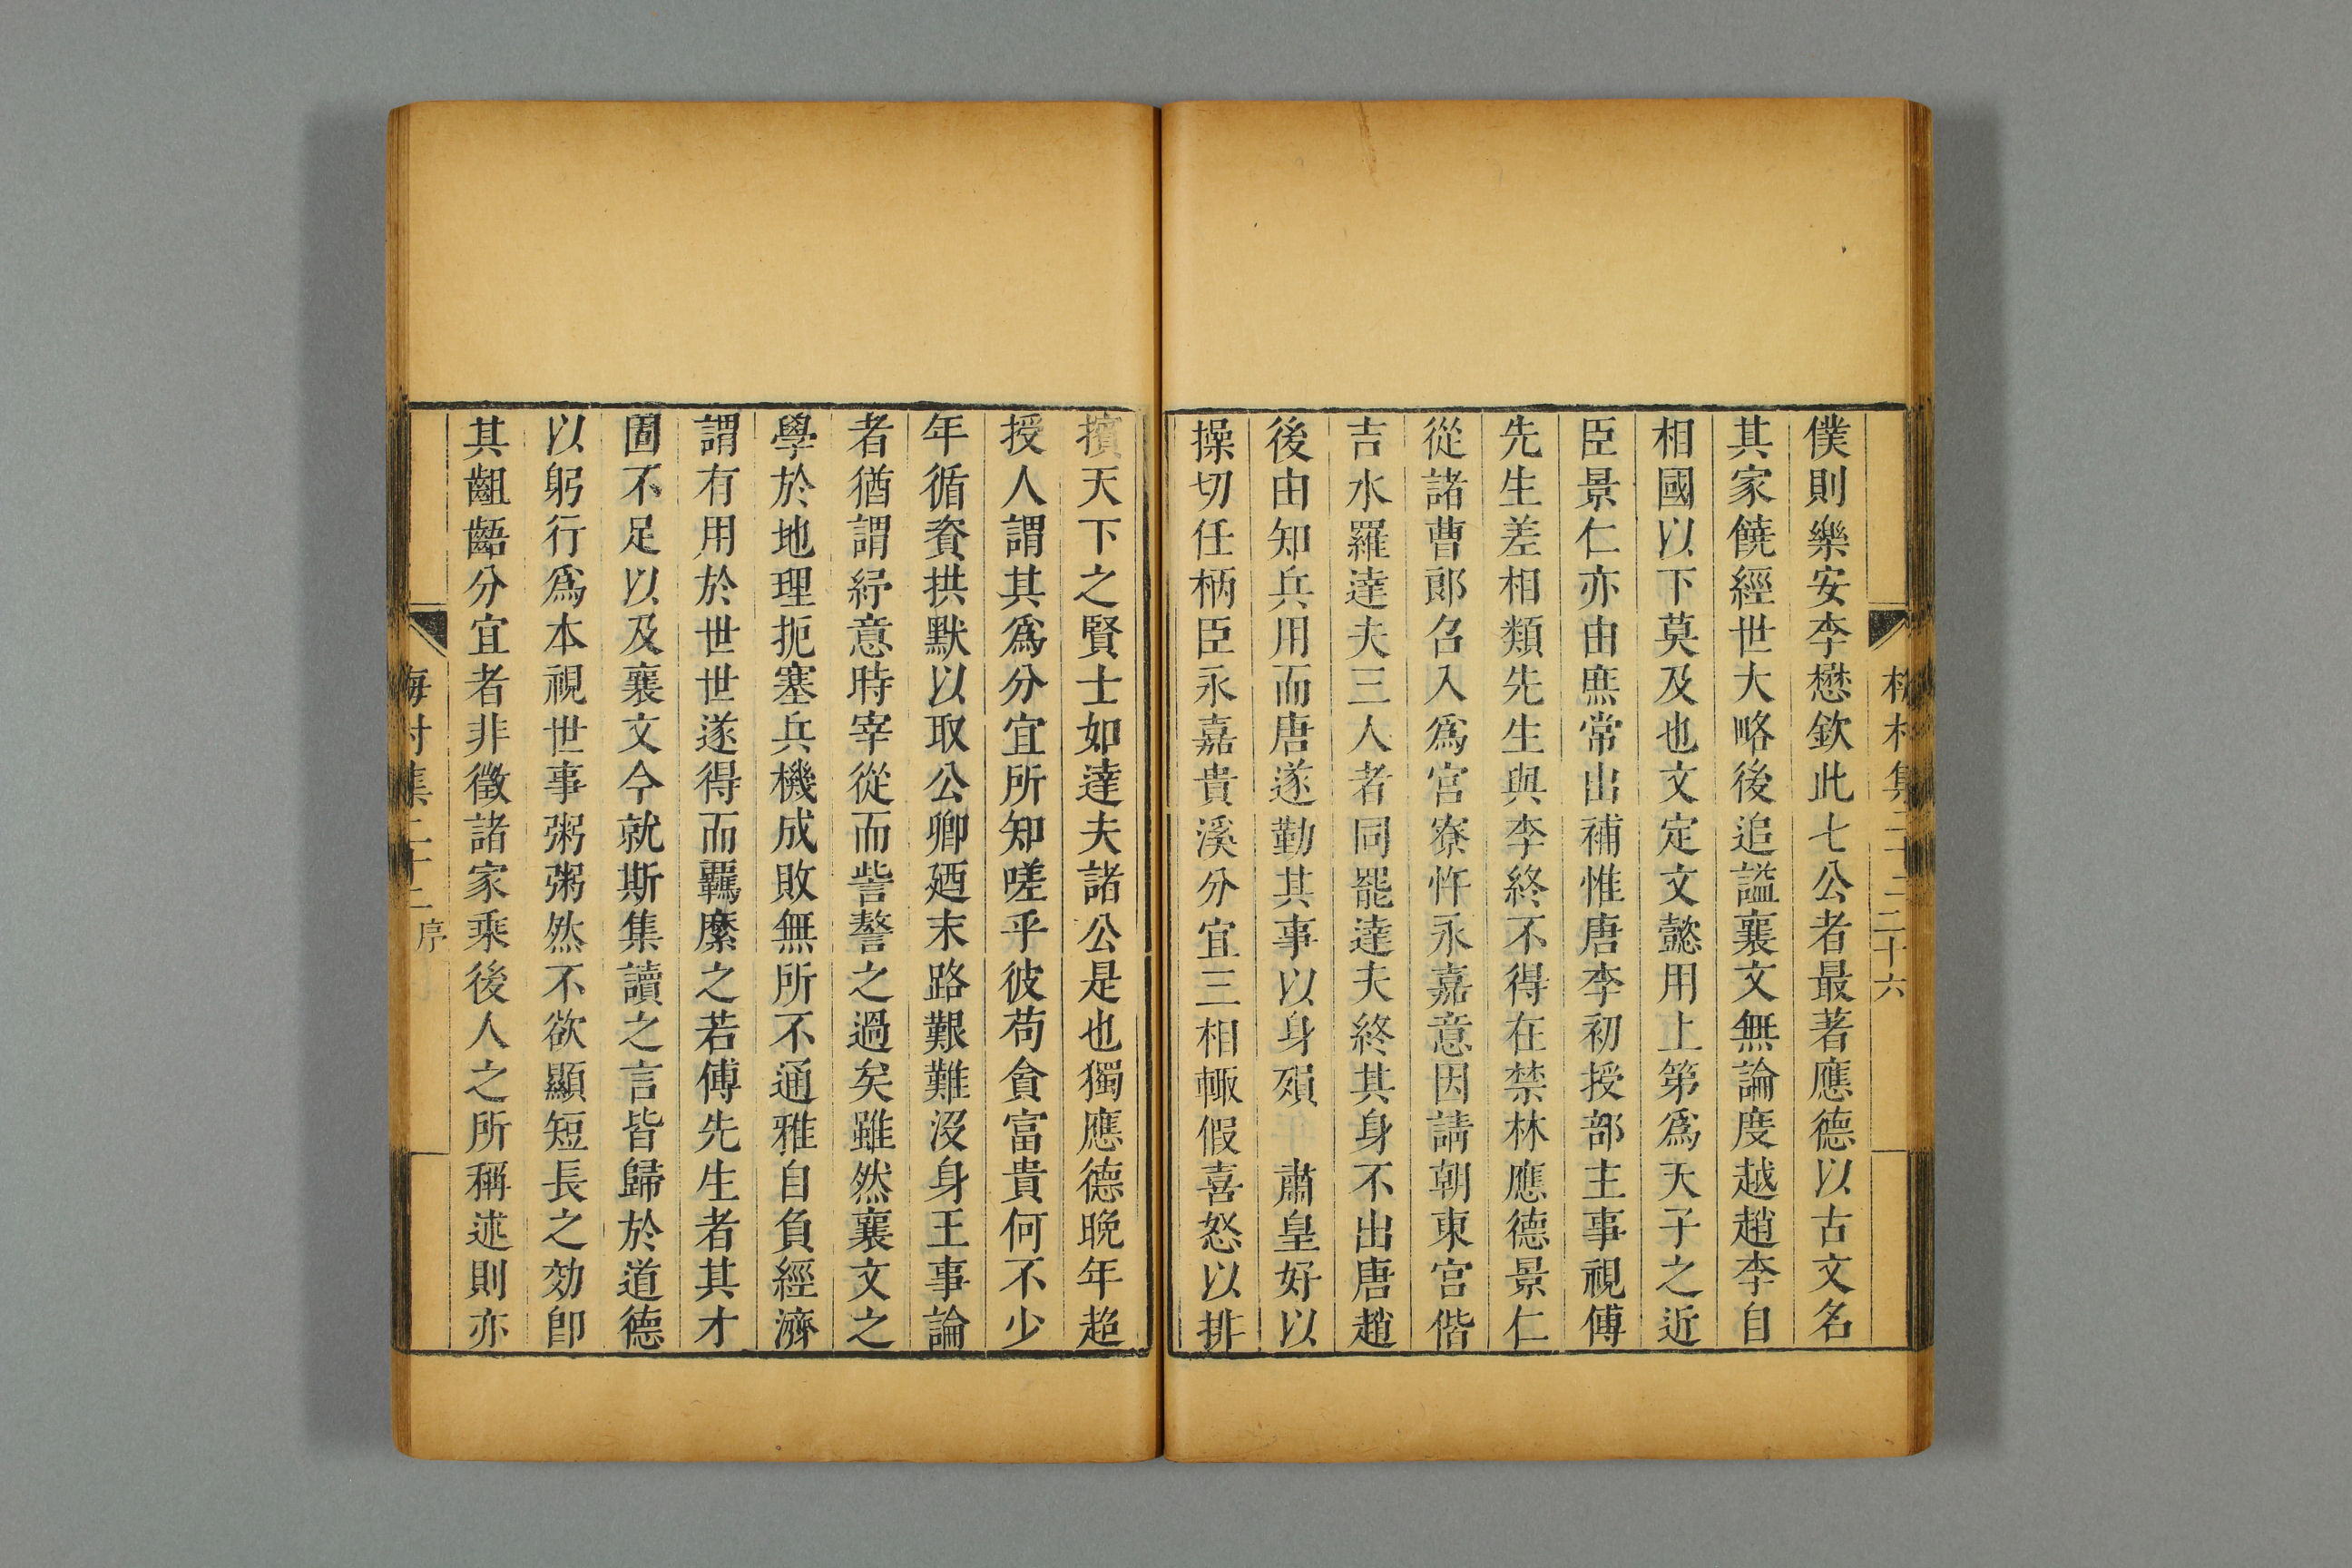 僕則樂安李懋欽此七公者最著應德以古文名
其家饒經世大略後追諡襄文無論度越趙李自
相國以下莫及也文定文懿用上第爲天子之近
臣景仁亦由庶常出補惟唐李初授部主事視傅
先生差相類先生與李終不得在禁林應德景仁
從諸曹郎名入爲宮寮忤永嘉意因請朝東宮偕
吉水羅達夫三人者同罷達夫終其身不出唐趙
後由知兵用而唐遂勤其事以身殞 肅皇好以
操切任柄臣永嘉貴溪分宜三相輙假喜怒以排
擯天下之賢士如達夫諸公是也獨應德晚年超
授人謂其爲分宜所知嗟乎彼苟貪富貴何不少
年循資拱默以取公卿廼末路艱難沒身王事論
者猶謂紓意時宰從而訾謷之過矣雖然襄文之
學於地理扼塞兵機成敗無所不通雅自負經濟
謂有用於世世遂得而羈縻之若傅先生者其才
固不足以及襄文今就斯集讀之言皆歸於道德
以躬行爲本視世事粥粥然不欲顯短長之効卽
其齟齬分宜者非徵諸家乘後人之所稱述則亦
梅村集二十二 序